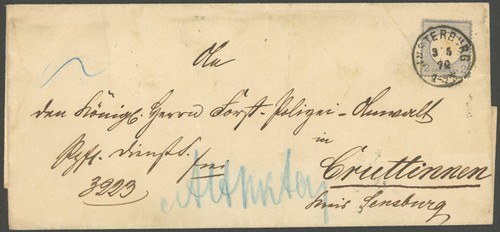 An
INSTERBURG
3 5
79
den Königl. Herrn Forst-Polizei-Anwalt
in
Pflf. Dienst S. frei
3223
Cruttinnen
Kreis Sensburg